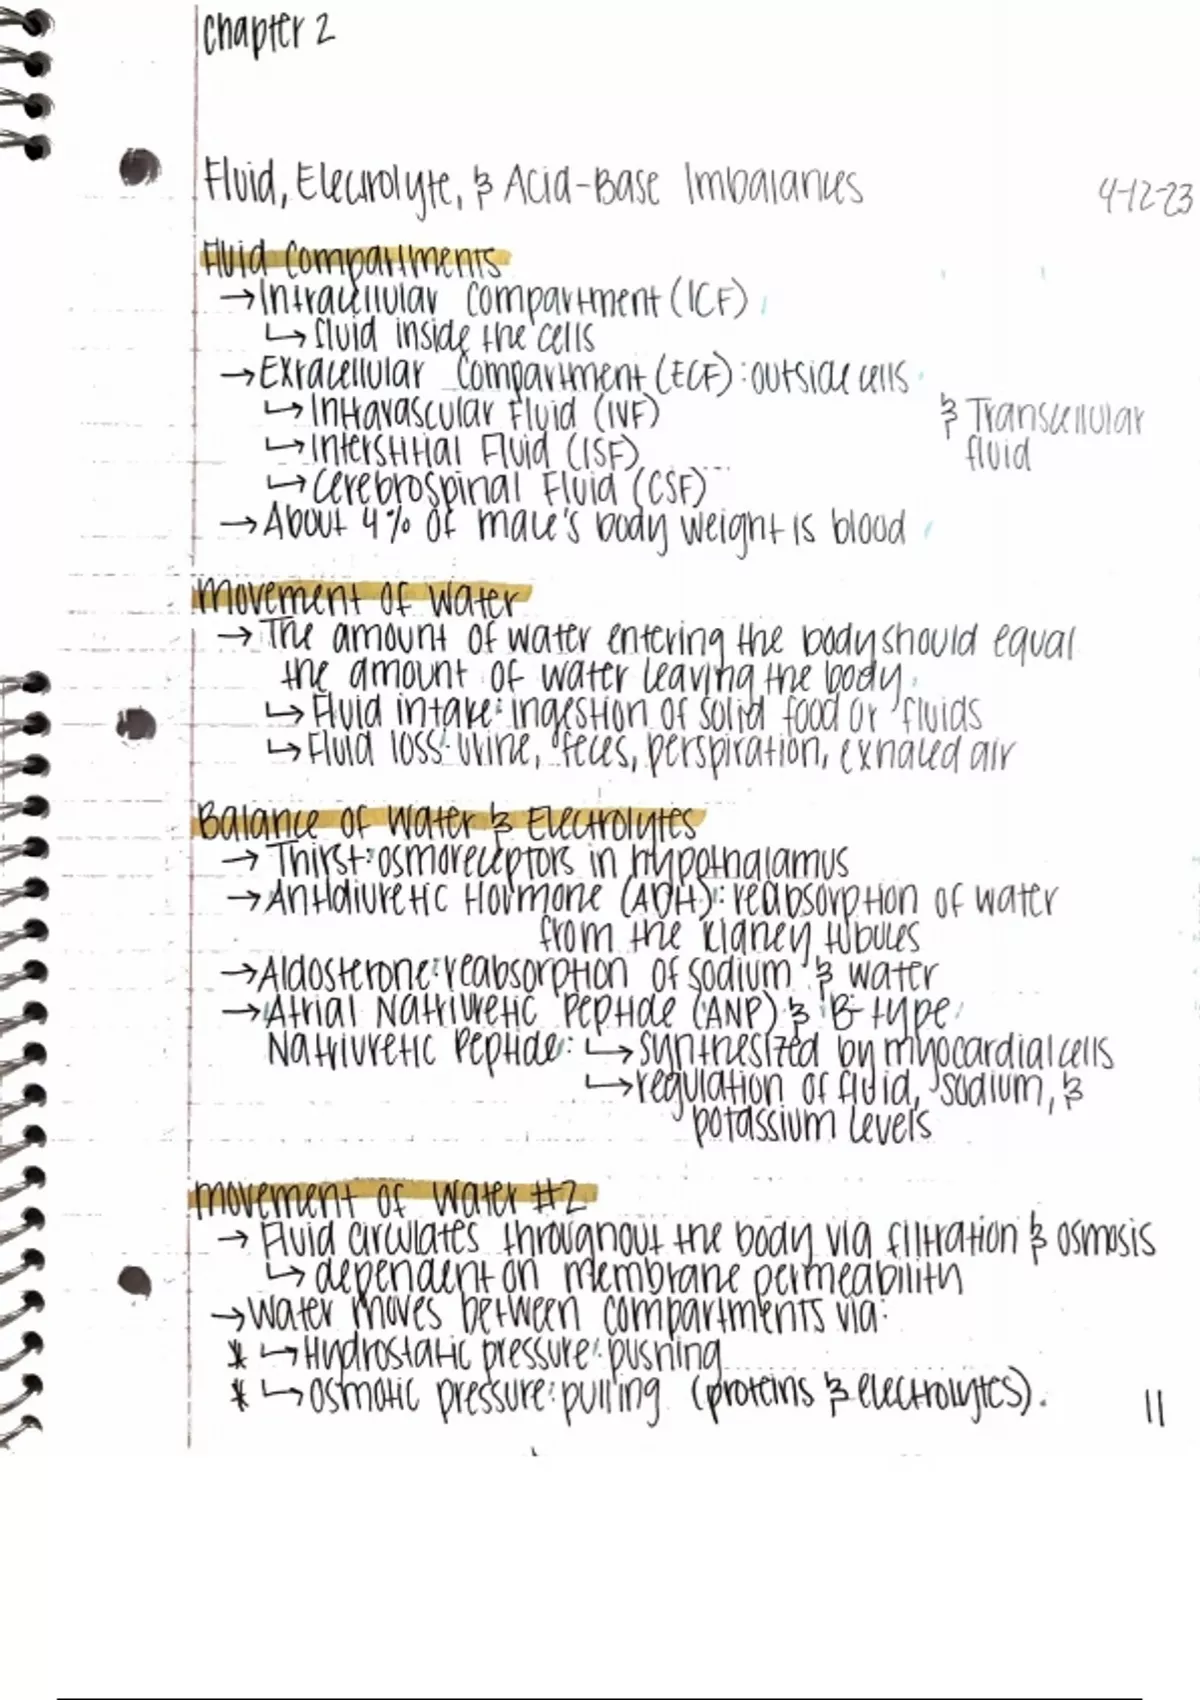 Chapter 2
Fluid, Electrolyte, & Acid-Base Imbalances
4-12-23
Fluid Compartments
→ Intracellular Compartment (ICF)
↳ fluid inside the cells
→ Extracellular Compartment (ECF): outside cells
↳ Intravascular Fluid (IVF)
& Transcellular
↳ Interstitial Fluid (ISF)
fluid
↳ Cerebrospinal Fluid (CSF)
→ About 4% of male's body weight is blood
Movement of Water
→ The amount of water entering the body should equal
the amount of water leaving the body.
↳ Fluid intake: ingestion of solid food or fluids
↳ Fluid loss: urine, feces, perspiration, exhaled air
Balance of Water & Electrolytes
→ Thirst: osmoreceptors in hypothalamus
→ Antidiuretic Hormone (ADH): reabsorption of water
from the kidney tubules
→ Aldosterone: reabsorption of sodium & water
→ Atrial Natriuretic Peptide (ANP) & B-type
Natriuretic Peptide: ↳ synthesized by myocardial cells
↳ regulation of fluid, sodium, &
potassium levels
Movement of Water #2
→ Fluid circulates throughout the body via filtration & osmosis
↳ dependent on membrane permeability
→ Water moves between compartments via:
* ↳ Hydrostatic pressure: pushing
* ↳ Osmotic pressure: pulling (proteins & electrolytes).
11